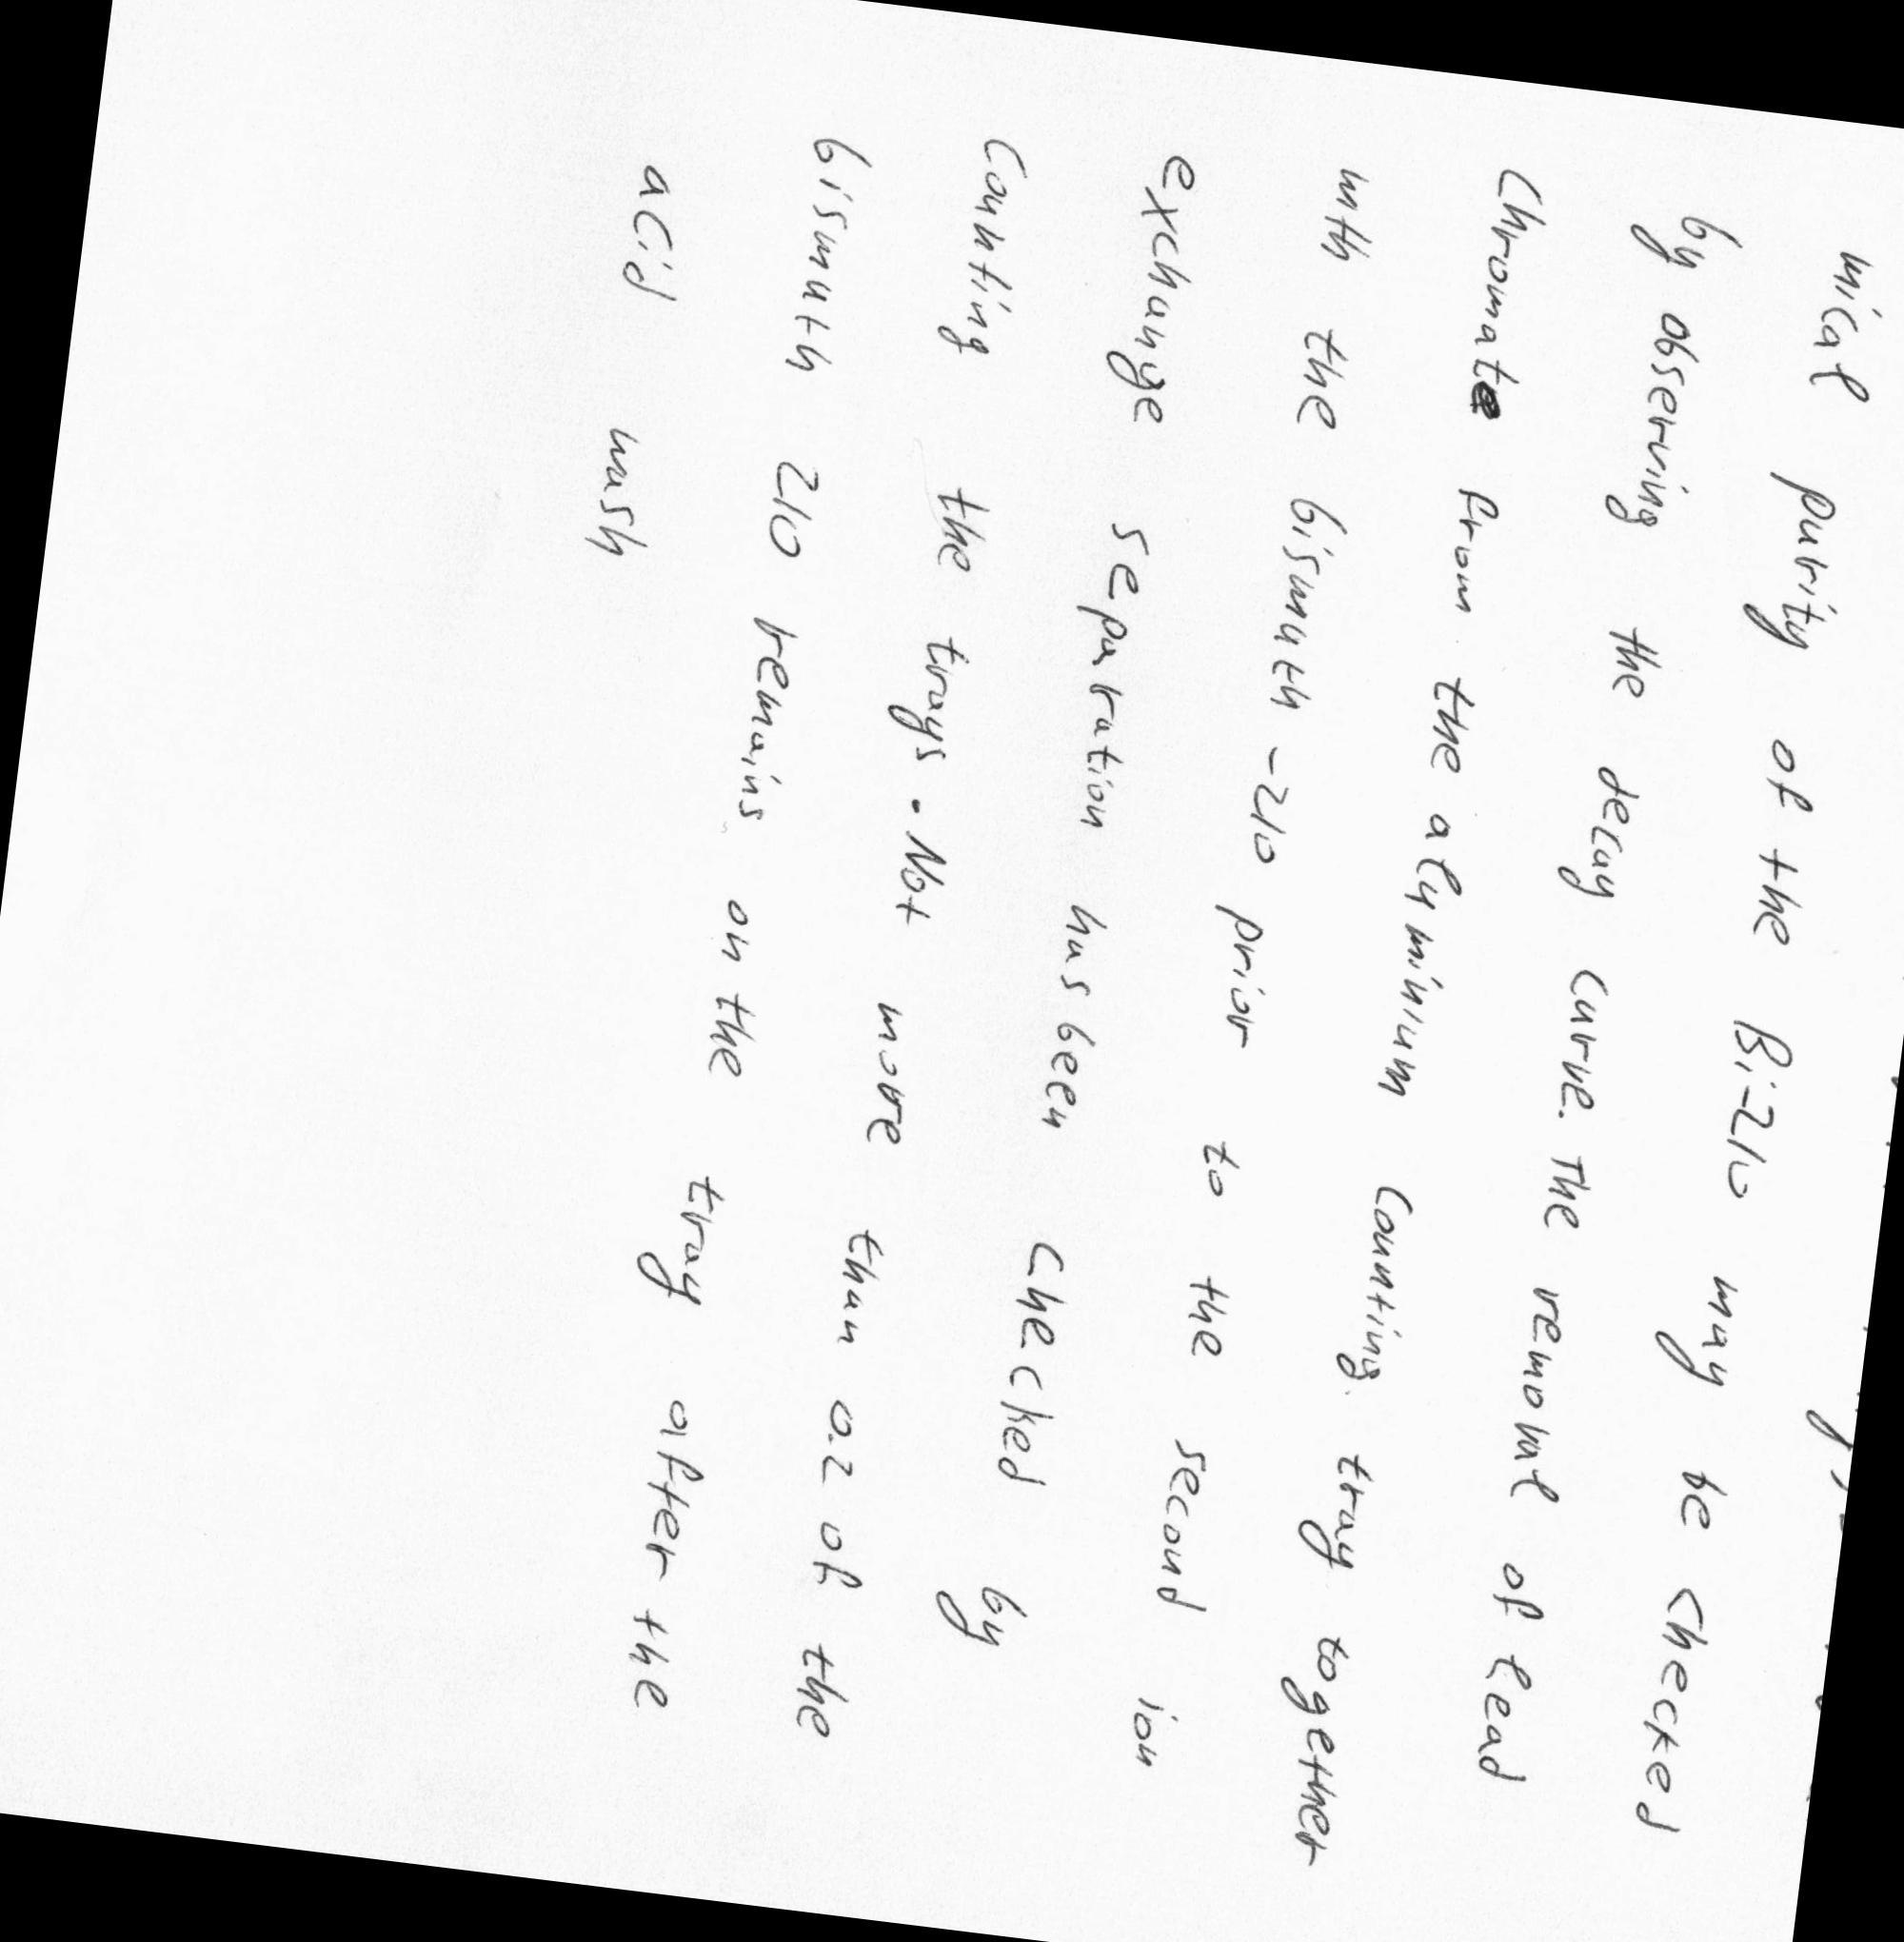 mical purity of the Bi-210 may be checked
by observing the decay curve. The removal of lead
Chromate from the alyminium Counting tray together
with the bismuth -210 prior to the second ion
exchange separation has been checked by
Counting the trays. Not more than 0.2 of the
bismuth 210 remains on the tray after the
acid wash